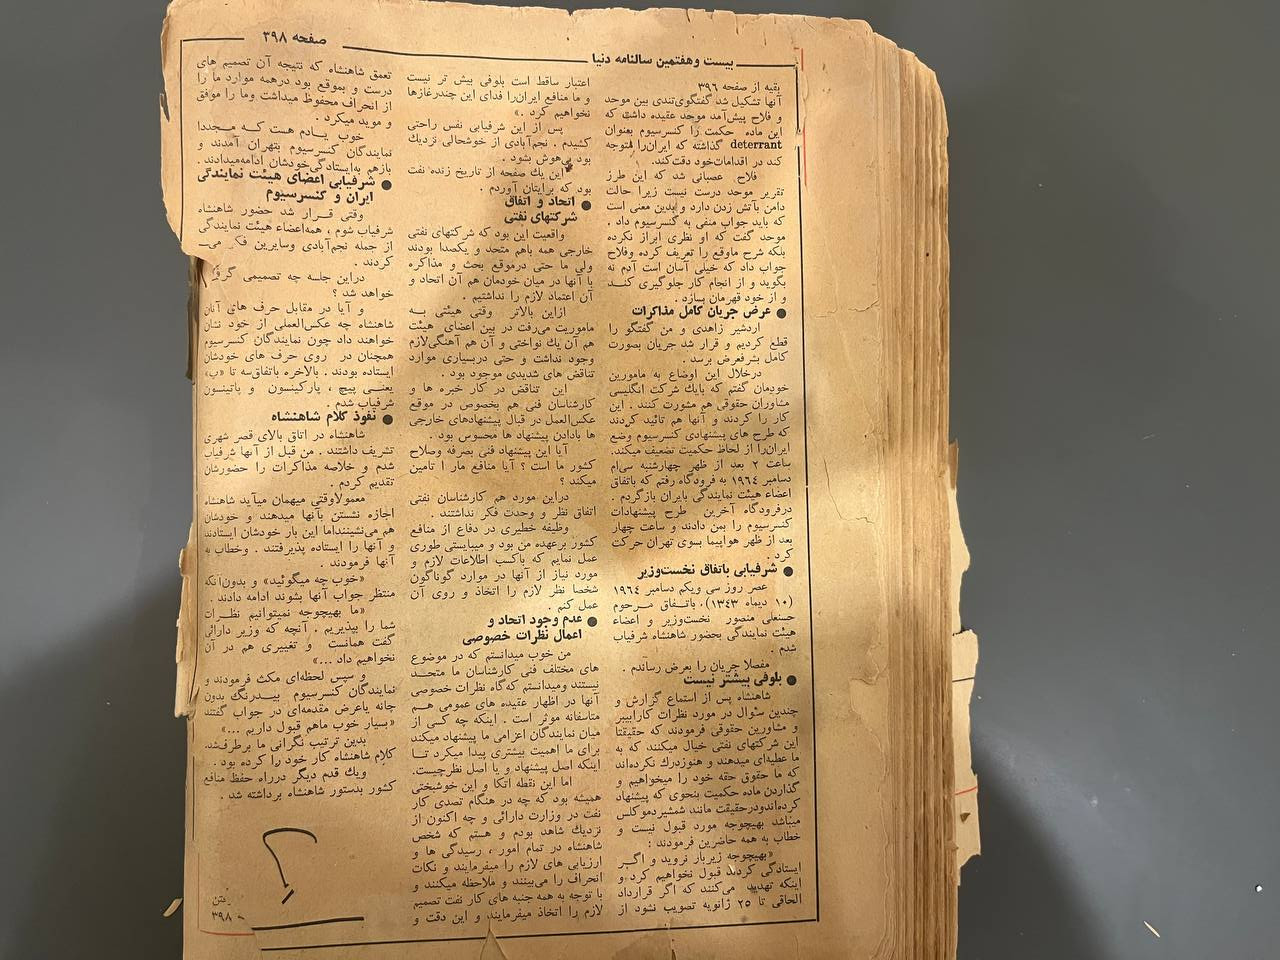 صفحه ۳۹۸
بیست وهفتمین سالنامه دنیا
بقیه از صفحه ۳۹۶
آنها تشکیل شد گفتگوی‌تندی بین موحد
و فلاح پیش‌آمد موحد عقیده داشت که
این ماده حکمت را کنسرسیوم بعنوان
deterrant گذاشته که ایران‌را متوجه
کند در اقدامات‌خود دقت‌کند.
فلاح عصبانی شد که این طرز
تقریر موحد درست نیست زیرا حالت
دامن بآتش زدن دارد و بدین معنی است
که باید جواب منفی به کنسرسیوم داد .
موحد گفت که او نظری ابراز نکرده
بلکه شرح ماوقع را تعریف کرده وفلاح
جواب داد که خیلی آسان است آدم نه
بگوید و از انجام کار جلوگیری کنــد
و از خود قهرمان بسازد .
● عرض جریان کامل مذاکرات
اردشیر زاهدی و من گفتگو را
قطع کردیم و قرار شد جریان بصورت
کامل بشرفعرض برسد .
درخلال این اوضاع به مامورین
خودمان گفتم که بایك شرکت انگلیسی
مشاوران حقوقی هم مشورت کنند . این
کار را کردند و آنها هم تائید کردند
که طرح های پیشنهادی کنسرسیوم وضع
ایران‌را از لحاظ حکمیت تضعیف میکند.
ساعت ۲ بعد از ظهر چهارشنبه سی‌ام
دسامبر ۱۹٦٤ به فرودگاه رفتم که باتفاق
اعضاء هیئت نمایندگی بایران بازگردم .
درفرودگاه آخرین طرح پیشنهادات
کنسرسیوم را بمن دادند و ساعت چهار
بعد از ظهر هواپیما بسوی تهران حرکت
کرد .
● شرفیابی باتفاق نخست‌وزیر
عصر روز سی ویکم دسامبر ۱۹٦٤
(۱۰ دیماه ۱۳٤۳)، باتــفاق مــرحوم
حسنعلی منصور نخست‌وزیر و اعضاء
هیئت نمایندگی بحضور شاهنشاه شرفیاب
شدم .
مفصلا جریان را بعرض رساندم .
● بلوفی بیشتر نیست
شاهنشاه پس از استماع گزارش و
چندین سئوال در مورد نظرات کارابیبر
و مشاورین حقوقی فرمودند که حقیقتا
این شرکتهای نفتی خیال میکنند که به
ما عطیه‌ای میدهند و هنوزدرك نکرده‌اند
که ما حقوق حقه خود را میخواهیم و
گذاردن ماده حکمیت بنحوی که پیشنهاد
کرده‌انددرحقیقت مانند شمشیردموکلس
میباشد بهیچوجه مورد قبول نیست و
خطاب به همه حاضرین فرمودند :
«بهیچوجه زیربار نروید و اگــر
ایستادگی کردند قبول نخواهیم کرد و
اینکه تهدید می‌کنند که اگر قرارداد
الحاقی تا ۲۵ ژانویه تصویب نشود از
اعتبار ساقط است بلوفی بیش تر نیست
و ما منافع ایران‌را فدای این چندرغازها
نخواهیم کرد .»
پس از این شرفیابی نفس راحتی
کشیدم . نجم‌آبادی از خوشحالی نزدیك
بود بی‌هوش بشود .
این یك صفحه از تاریخ زنده نفت
بود که برایتان آوردم .
● اتحاد و اتفاق
شرکتهای نفتی
واقعیت این بود که شرکتهای نفتی
خارجی همه باهم متحد و یکصدا بودند
ولی ما حتی درموقع بحث و مذاکره
با آنها در میان خودمان هم آن اتحاد و
آن اعتماد لازم را نداشتیم .
ازاین بالاتر وقتی هیئتی بــه
ماموریت می‌رفت در بین اعضای هیئت
هم آن یك نواختی و آن هم آهنگی‌لازم
وجود نداشت و حتی دربسیاری موارد
تناقض های شدیدی موجود بود .
این تناقض در کار خبره ها و
کارشناسان فنی هم بخصوص در موقع
عکس‌العمل در قبال پیشنهادهای خارجی
ها بادادن پیشنهاد ها محسوس بود .
آیا این پیشنهاد فنی بصرفه وصلاح
کشور ما است ؟ آیا منافع مار ا تامین
میکند ؟
دراین مورد هم کارشناسان نفتی
اتفاق نظر و وحدت فکر نداشتند .
وظیفه خطیری در دفاع از منافع
کشور برعهده من بود و میبایستی طوری
عمل نمایم که باکسب اطلاعات لازم و
مورد نیاز از آنها در موارد گوناگون
شخصا نظر لازم را اتخاذ و روی آن
عمل کنم .
● عدم وجود اتحاد و
اعمال نظرات خصوصی
من خوب میدانستم که در موضوع
های مختلف فنی کارشناسان ما متحــد
نیستند ومیدانستم که‌گاه نظرات خصوصی
آنها در اظهار عقیده های عمومی هــم
متاسفانه موثر است . اینکه چه کسی از
میان نمایندگان اعزامی ما پیشنهاد میکند
برای ما اهمیت بیشتری پیدا میکرد تــا
اینکه اصل پیشنهاد و یا اصل نظرچیست.
اما این نقطه اتکا و این خوشبختی
همیشه بود که چه در هنگام تصدی کار
نفت در وزارت دارائی و چه اکنون از
نزدیك شاهد بودم و هستم که شخص
شاهنشاه در تمام امور ، رسیدگی ها و
ارزیابی های لازم را میفرمایند و نکات
انحراف را می‌بینند و ملاحظه میکنند و
با توجه به همه جنبه های کار نفت تصمیم
لازم را اتخاذ میفرمایند و این دقت و
تعمق شاهنشاه که نتیجه آن تصمیم های
درست و بموقع بود درهمه موارد ما را
از انحراف محفوظ میداشت وما را موفق
و موید میکرد .
خوب یــادم هست کــه مــجددا
نمایندگان کنسرسیوم بتهران آمدند و
بازهم به‌ایستادگی‌خودشان ادامه‌میدادند .
● شرفیابی اعضای هیئت نمایندگی
ایران و کنسرسیوم
وقتی قــرار شد حضور شاهنشاه
شرفیاب شوم ، همه‌اعضاء هیئت نمایندگی
از جمله نجم‌آبادی وسایرین فکر می‌ــ
کردند .
دراین جلسه چه تصمیمی گرفته
خواهد شد ؟
و آیا در مقابل حرف های آنان
شاهنشاه چه عکس‌العملی از خود نشان
خواهند داد چون نمایندگان کنسرسیوم
همچنان در روی حرف های خودشان
ایستاده بودند . بالاخره باتفاق‌سه تا «پ»
یعنــی پیچ ، پارکینسون و پاتینسون
شرفیاب شدم .
● نفوذ کلام شاهنشاه
شاهنشاه در اتاق بالای قصر شهری
تشریف داشتند . من قبل از آنها شرفیاب
شدم و خلاصه مذاکرات را حضورشان
تقدیم کردم .
معمولاوقتی میهمان میآید شاهنشاه
اجازه نشستن بآنها میدهند و خودشان
هم می‌نشینند‌اما این بار خودشان ایستادند
و آنها را ایستاده پذیرفتند . وخطاب به
آنها فرمودند .
«خوب چه میگوئید» و بدون‌آنکه
منتظر جواب آنها بشوند ادامه دادند .
«ما بهیچوجه نمیتوانیم نظــرات
شما را بپذیریم . آنچه که وزیر دارائی
گفت همانست و تغییری هم در آن
نخواهیم داد ...»
و سپس لحظه‌ای مکث فرمودند و
نمایندگان کنسرسیوم بیــدرنگ بدون
چانه یاعرض مقدمه‌ای در جواب گفتند
«بسیار خوب ماهم قبول داریم ...»
بدین ترتیب نگرانی ما برطرف‌شد.
کلام شاهنشاه کار خود را کرده بود .
ویك قدم دیگر درراه حفظ منافع
کشور بدستور شاهنشاه برداشته شد .
۳۹۸